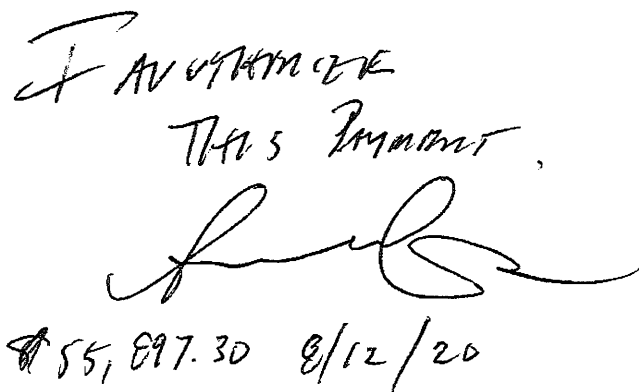 I AUUTHORIZE
THIS PAYMENT.
$55,897.30 8/12/20